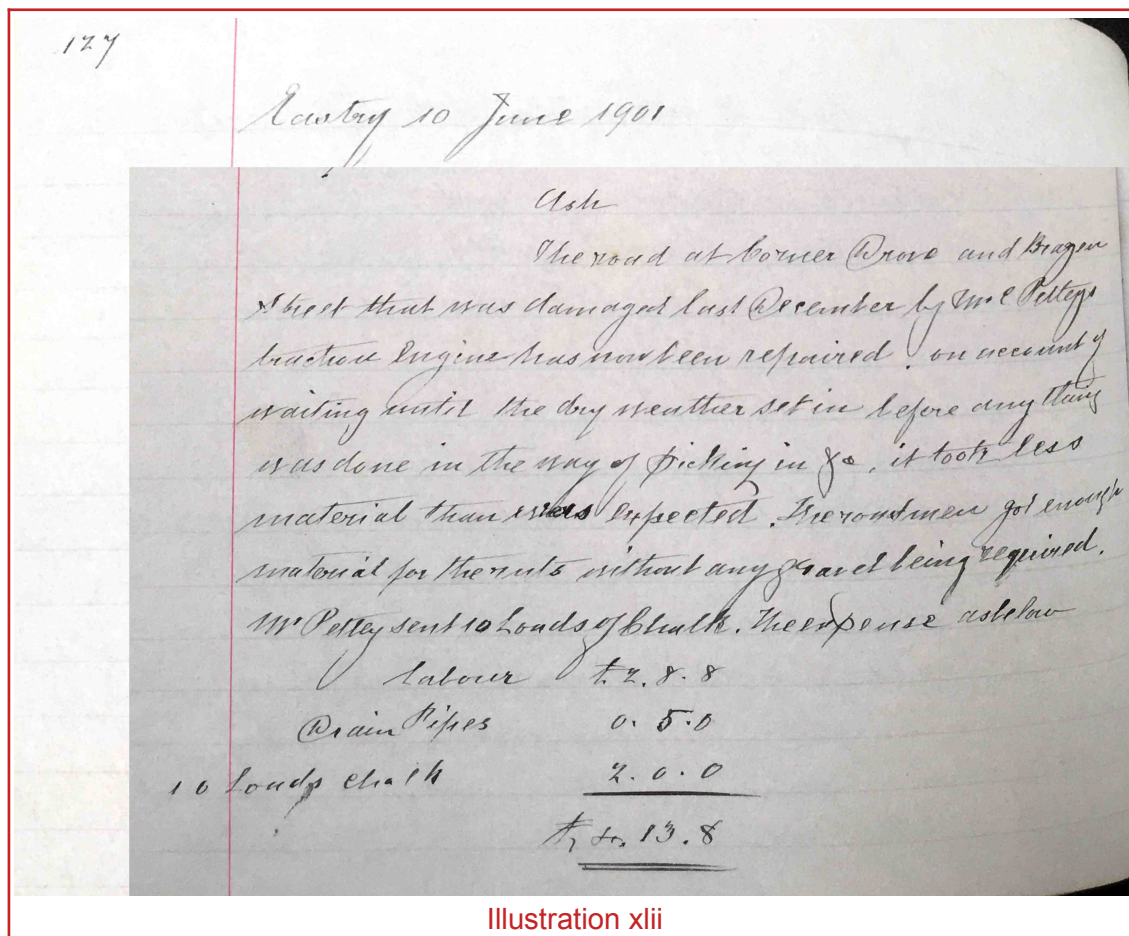 127
Eastry 10 June 1901
Ash
The road at Corner Drove and Brazen
Street that was damaged last December by Mr C Petteys
traction Engine has now been repaired. on account of
waiting until the dry weather set in before any thing
was done in the way of picking in &c, it took less
material than was expected. The roadmen got enough
material for the ruts without any gravel being required.
Mr Pettey sent 10 Loads of Chalk. The expense as below
labour £2.8.8
Drain Pipes 0.5.0
10 Loads Chalk 2.0.0
£4.13.8
Illustration xlii